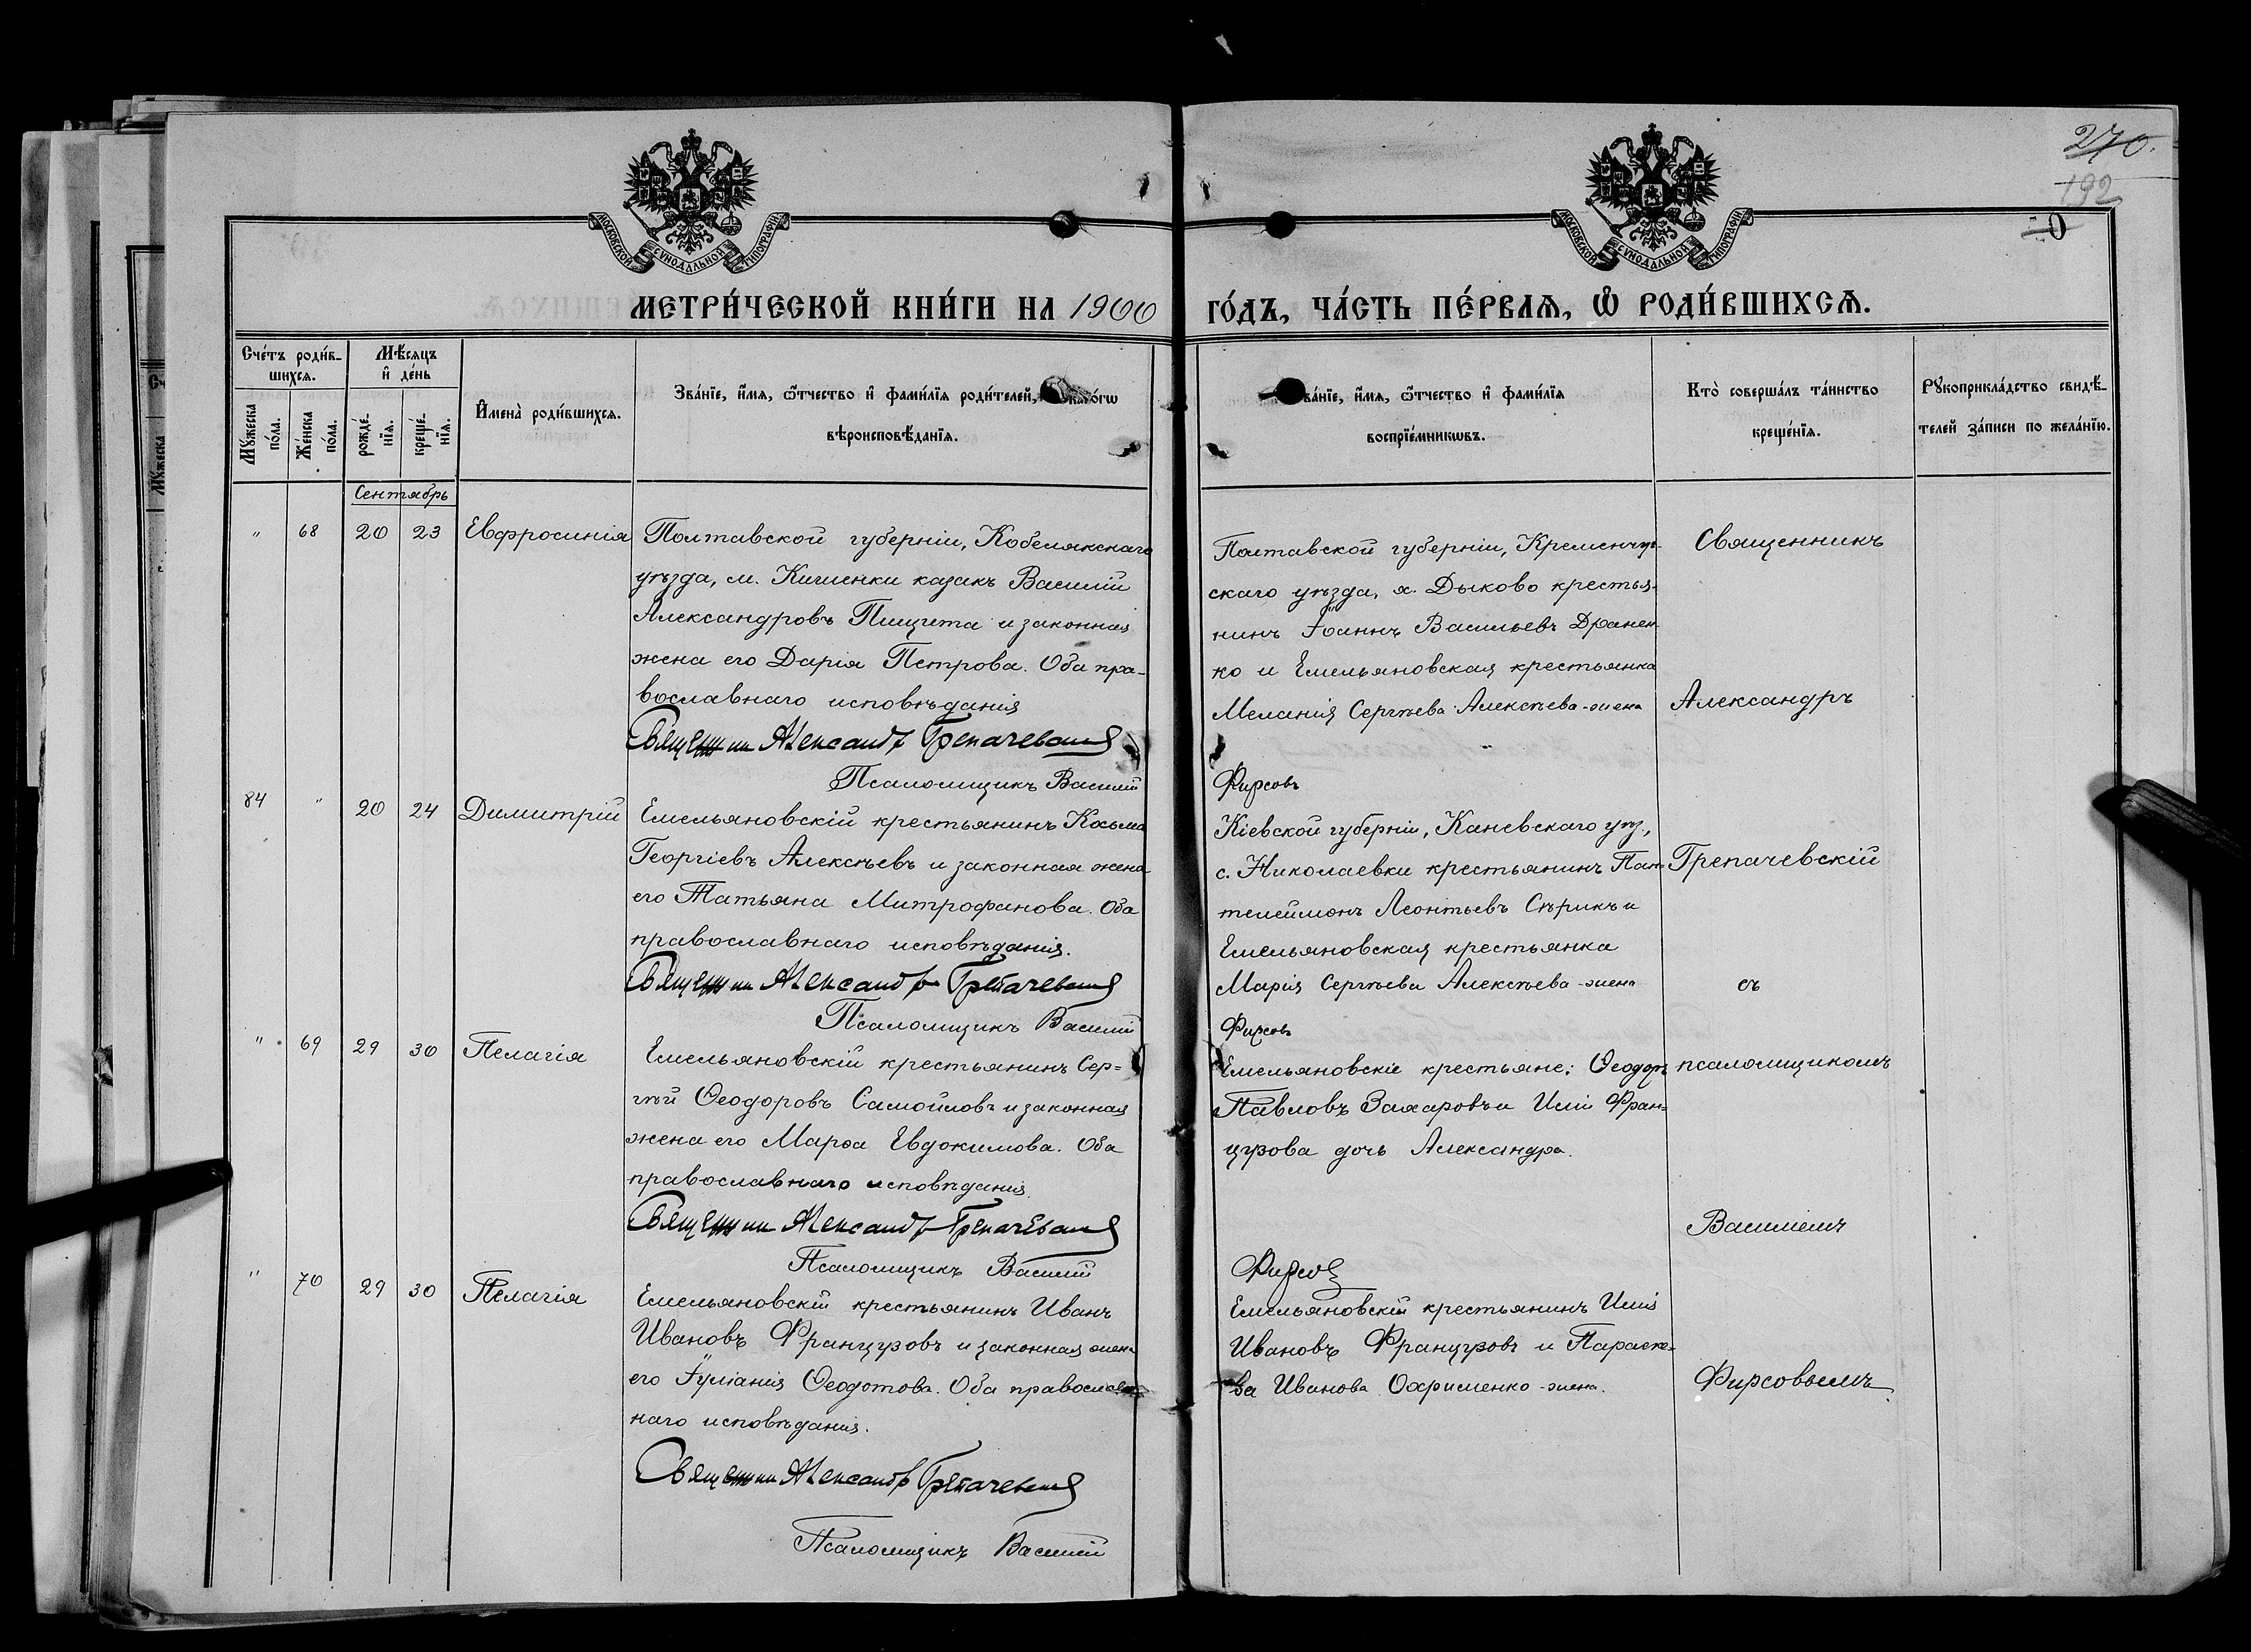 270.
192
МОСКОВСКОЙ СѴНОДАЛЬНОЙ ТИПОГРАФІИ
МОСКОВСКОЙ СѴНОДАЛЬНОЙ ТИПОГРАФІИ
МЕТРИ́ЧЕСКОЙ КНИ́ГИ НА 1900 ГО́ДЪ, ЧА́СТЬ ПЕ́РВАѦ, Ѿ РОДИ́ВШИХСѦ.
Сче́тъ роди́в-
шихсѧ.
Мꙋ́жеска по́ла.
Же́нска по́ла.
Мѣ́сѧцъ
и҆ де́нь
рожде́-
нїѧ.
креще́-
нїѧ.
И҆мена̀ роди́вшихсѧ.
Зва́нїе, и҆́мѧ, ѻ҆́тчество и҆ фами́лїѧ роди́телей,
вѣроисповѣ́данїѧ.
зва́нїе, и҆́мѧ, ѻ҆́тчество и҆ фами́лїѧ
воспрїе́мникѡвъ.
Кто̀ соверша́лъ та́инство
креще́нїѧ.
Рꙋкоприкла́дство свидѣ́-
телей за́писи по жела́нїю.
Сентябрь
" 68 20 23 Евфросинія
Полтавской губерніи, Кобелякскаго
уѣзда, м. Кишенки казакъ Василій
Александровъ Пищита и законная
жена его Дарія Петрова. Оба пра-
вославнаго исповѣданія
Священник Александръ Грепачевскій
Псаломщикъ Василій Фирсовъ
Полтавской губерніи, Кременчуг-
скаго уѣзда, х. Дыково крестья-
нинъ Іоаннъ Васильевъ Дранен-
ко и Емельяновская крестьянка
Меланія Сергѣева Алексѣева-жена
Священникъ
Александръ
84 " 20 24 Димитрій
Емельяновскій крестьянинъ Косьма
Георгіевъ Алексѣевъ и законная жена
его Татьяна Митрофанова. Оба
православнаго исповѣданія.
Священник Александръ Грепачевскій
Псаломщикъ Василій Фирсовъ
Кіевской губерніи, Каневскаго уѣз.,
с. Николаевки крестьянинъ Пан-
телеймонъ Леонтьевъ Сѣрикъ и
Емельяновская крестьянка
Марія Сергѣева Алексѣева-жена
Грепачевскій
съ
" 69 29 30 Пелагія
Емельяновскій крестьянинъ Сер-
гѣй Ѳеодоровъ Самойловъ и законная
жена его Марѳа Евдокимова. Оба
православнаго исповѣданія.
Священник Александръ Грепачевскій
Псаломщикъ Василій Фирсовъ
Емельяновскіе крестьяне: Ѳеодоръ
Павловъ Захаровъ и Иліи Фран-
цузова дочь Александра.
псаломщикомъ
Василіемъ
" 70 29 30 Пелагія
Емельяновскій крестьянинъ Иванъ
Ивановъ Французовъ и законная жена
его Іуліанія Ѳеодотова. Оба православ-
наго исповѣданія.
Священник Александръ Грепачевскій
Псаломщикъ Василій
Емельяновскій крестьянинъ Илія
Ивановъ Французовъ и Параске-
ва Иванова Охрименко-жена.
Фирсовымъ